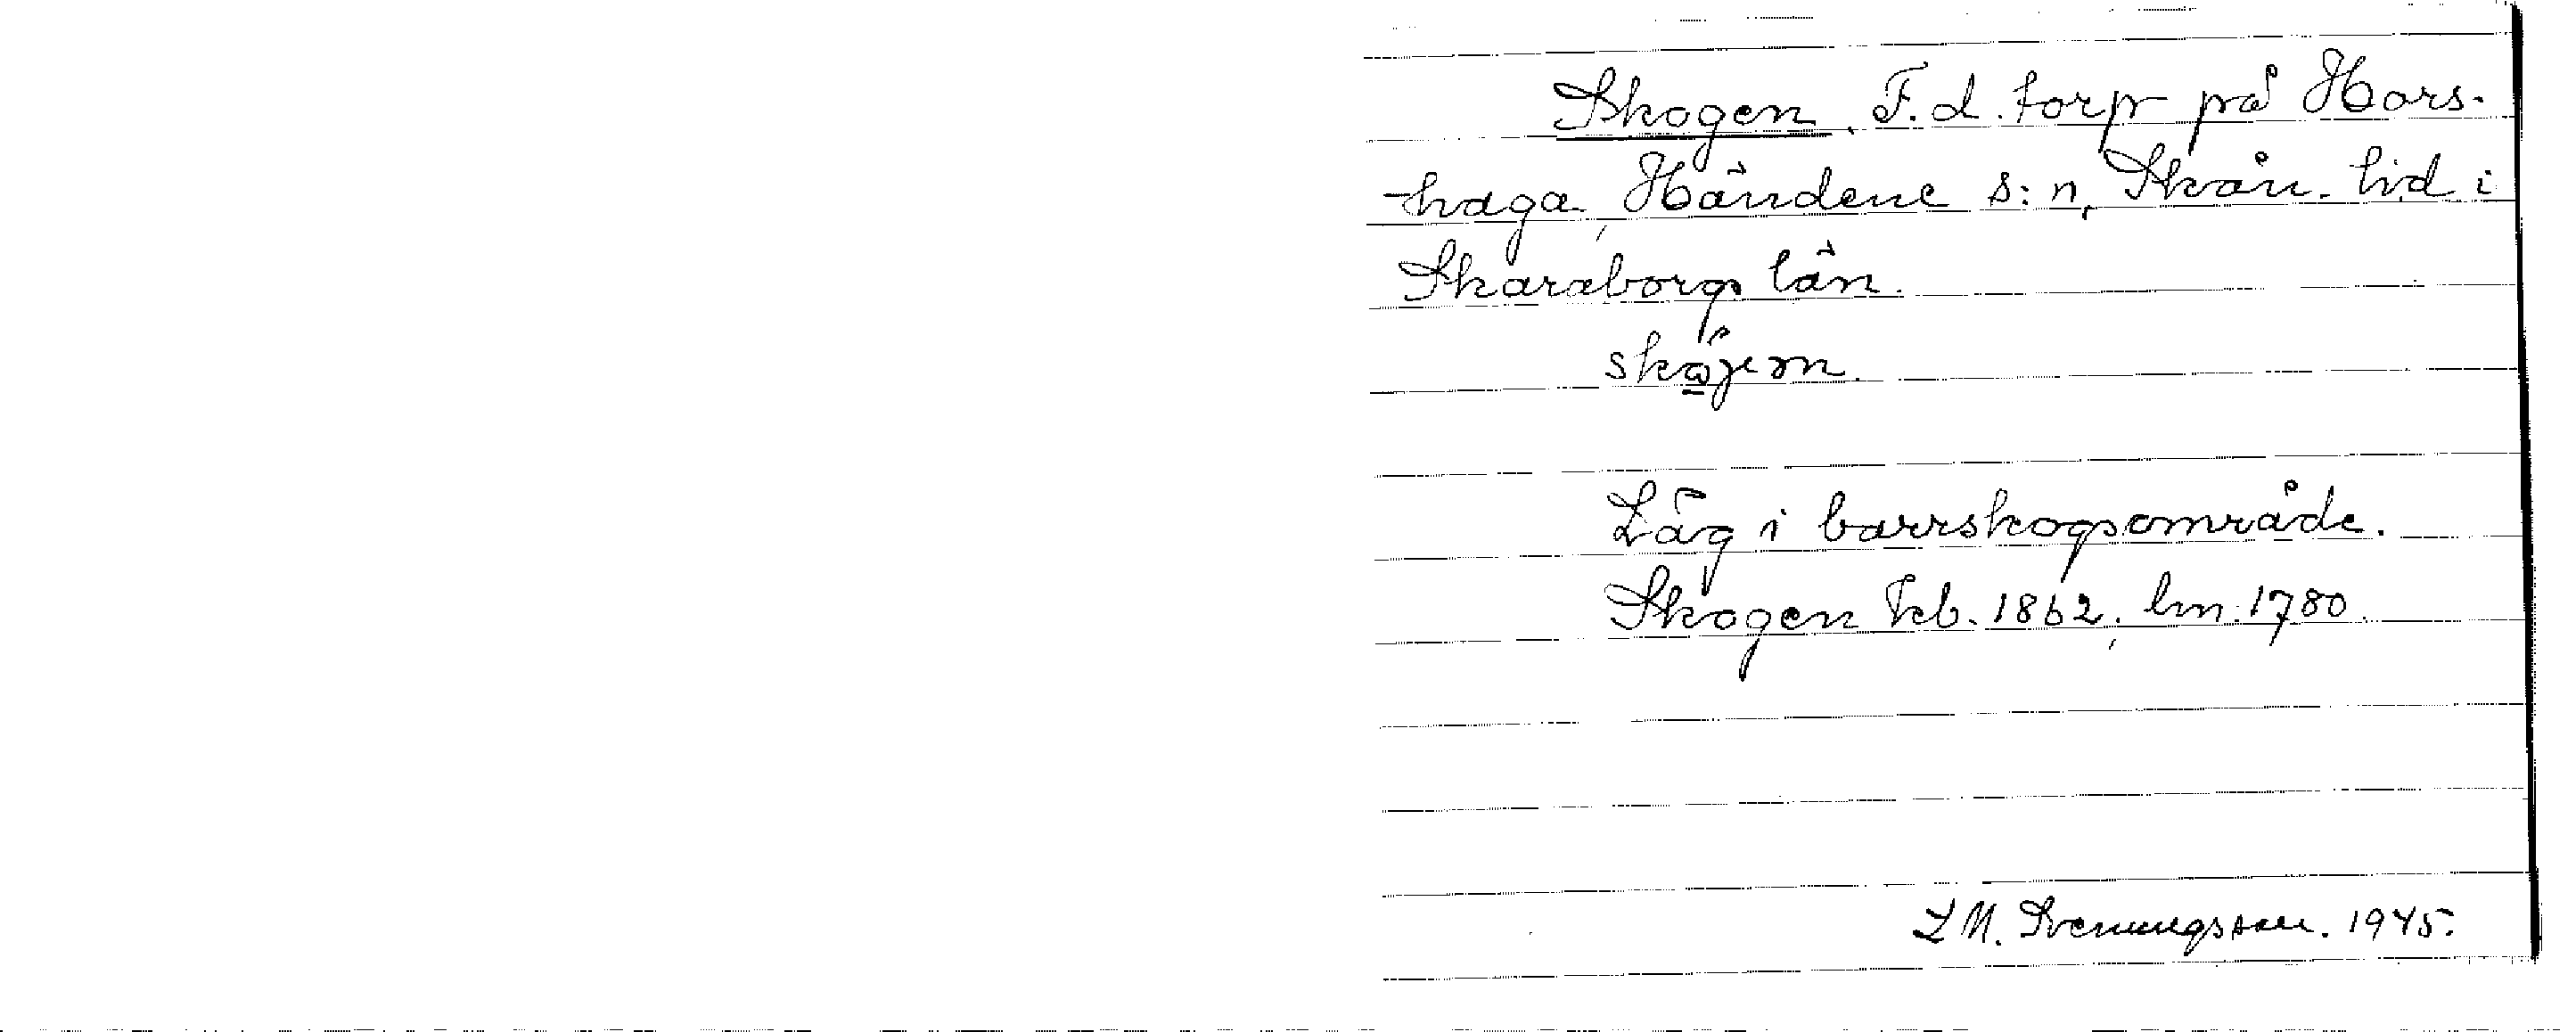 Skogen. F.d. torp på Hors-
haga, Händene s:n, Skån. hd i
Skaraborgs län.
Låg i barrskogsområde.
Skogen kb. 1862; lm. 1780.
L M. Svenungsson. 1945.